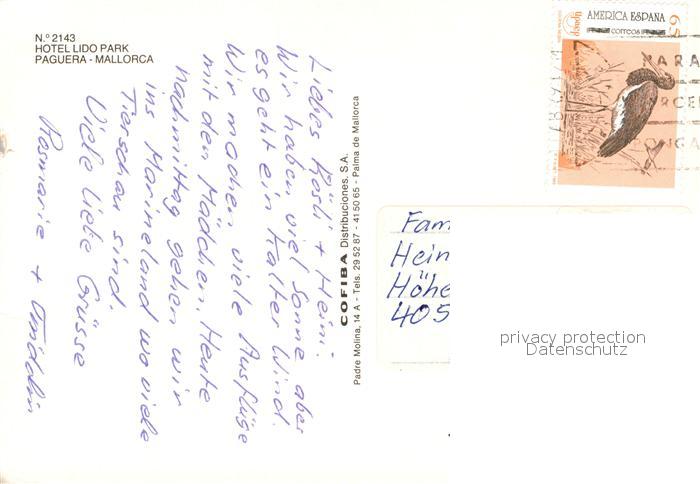 N.º 2143
HOTEL LIDO PARK
PAGUERA - MALLORCA
Liebes Rösli + Heini.
Wir haben viel Sonne aber
es geht ein kalter Wind.
Wir machen viele Ausflüge
mit den Mädchen. Heute
nachmittag gehen wir
ins Marineland wo viele
Tierschau sind.
Viele liebe Grüsse
Rosmarie + Fridolin
COFIBA Distribuciones, S.A.
Padre Molina, 14 A - Tels. 29 52 87 - 41 50 65 - Palma de Mallorca
Upaep
AMERICA ESPAÑA
CORREOS
65
PARA
Fam
Hein
Höhe
405
privacy protection
Datenschutz